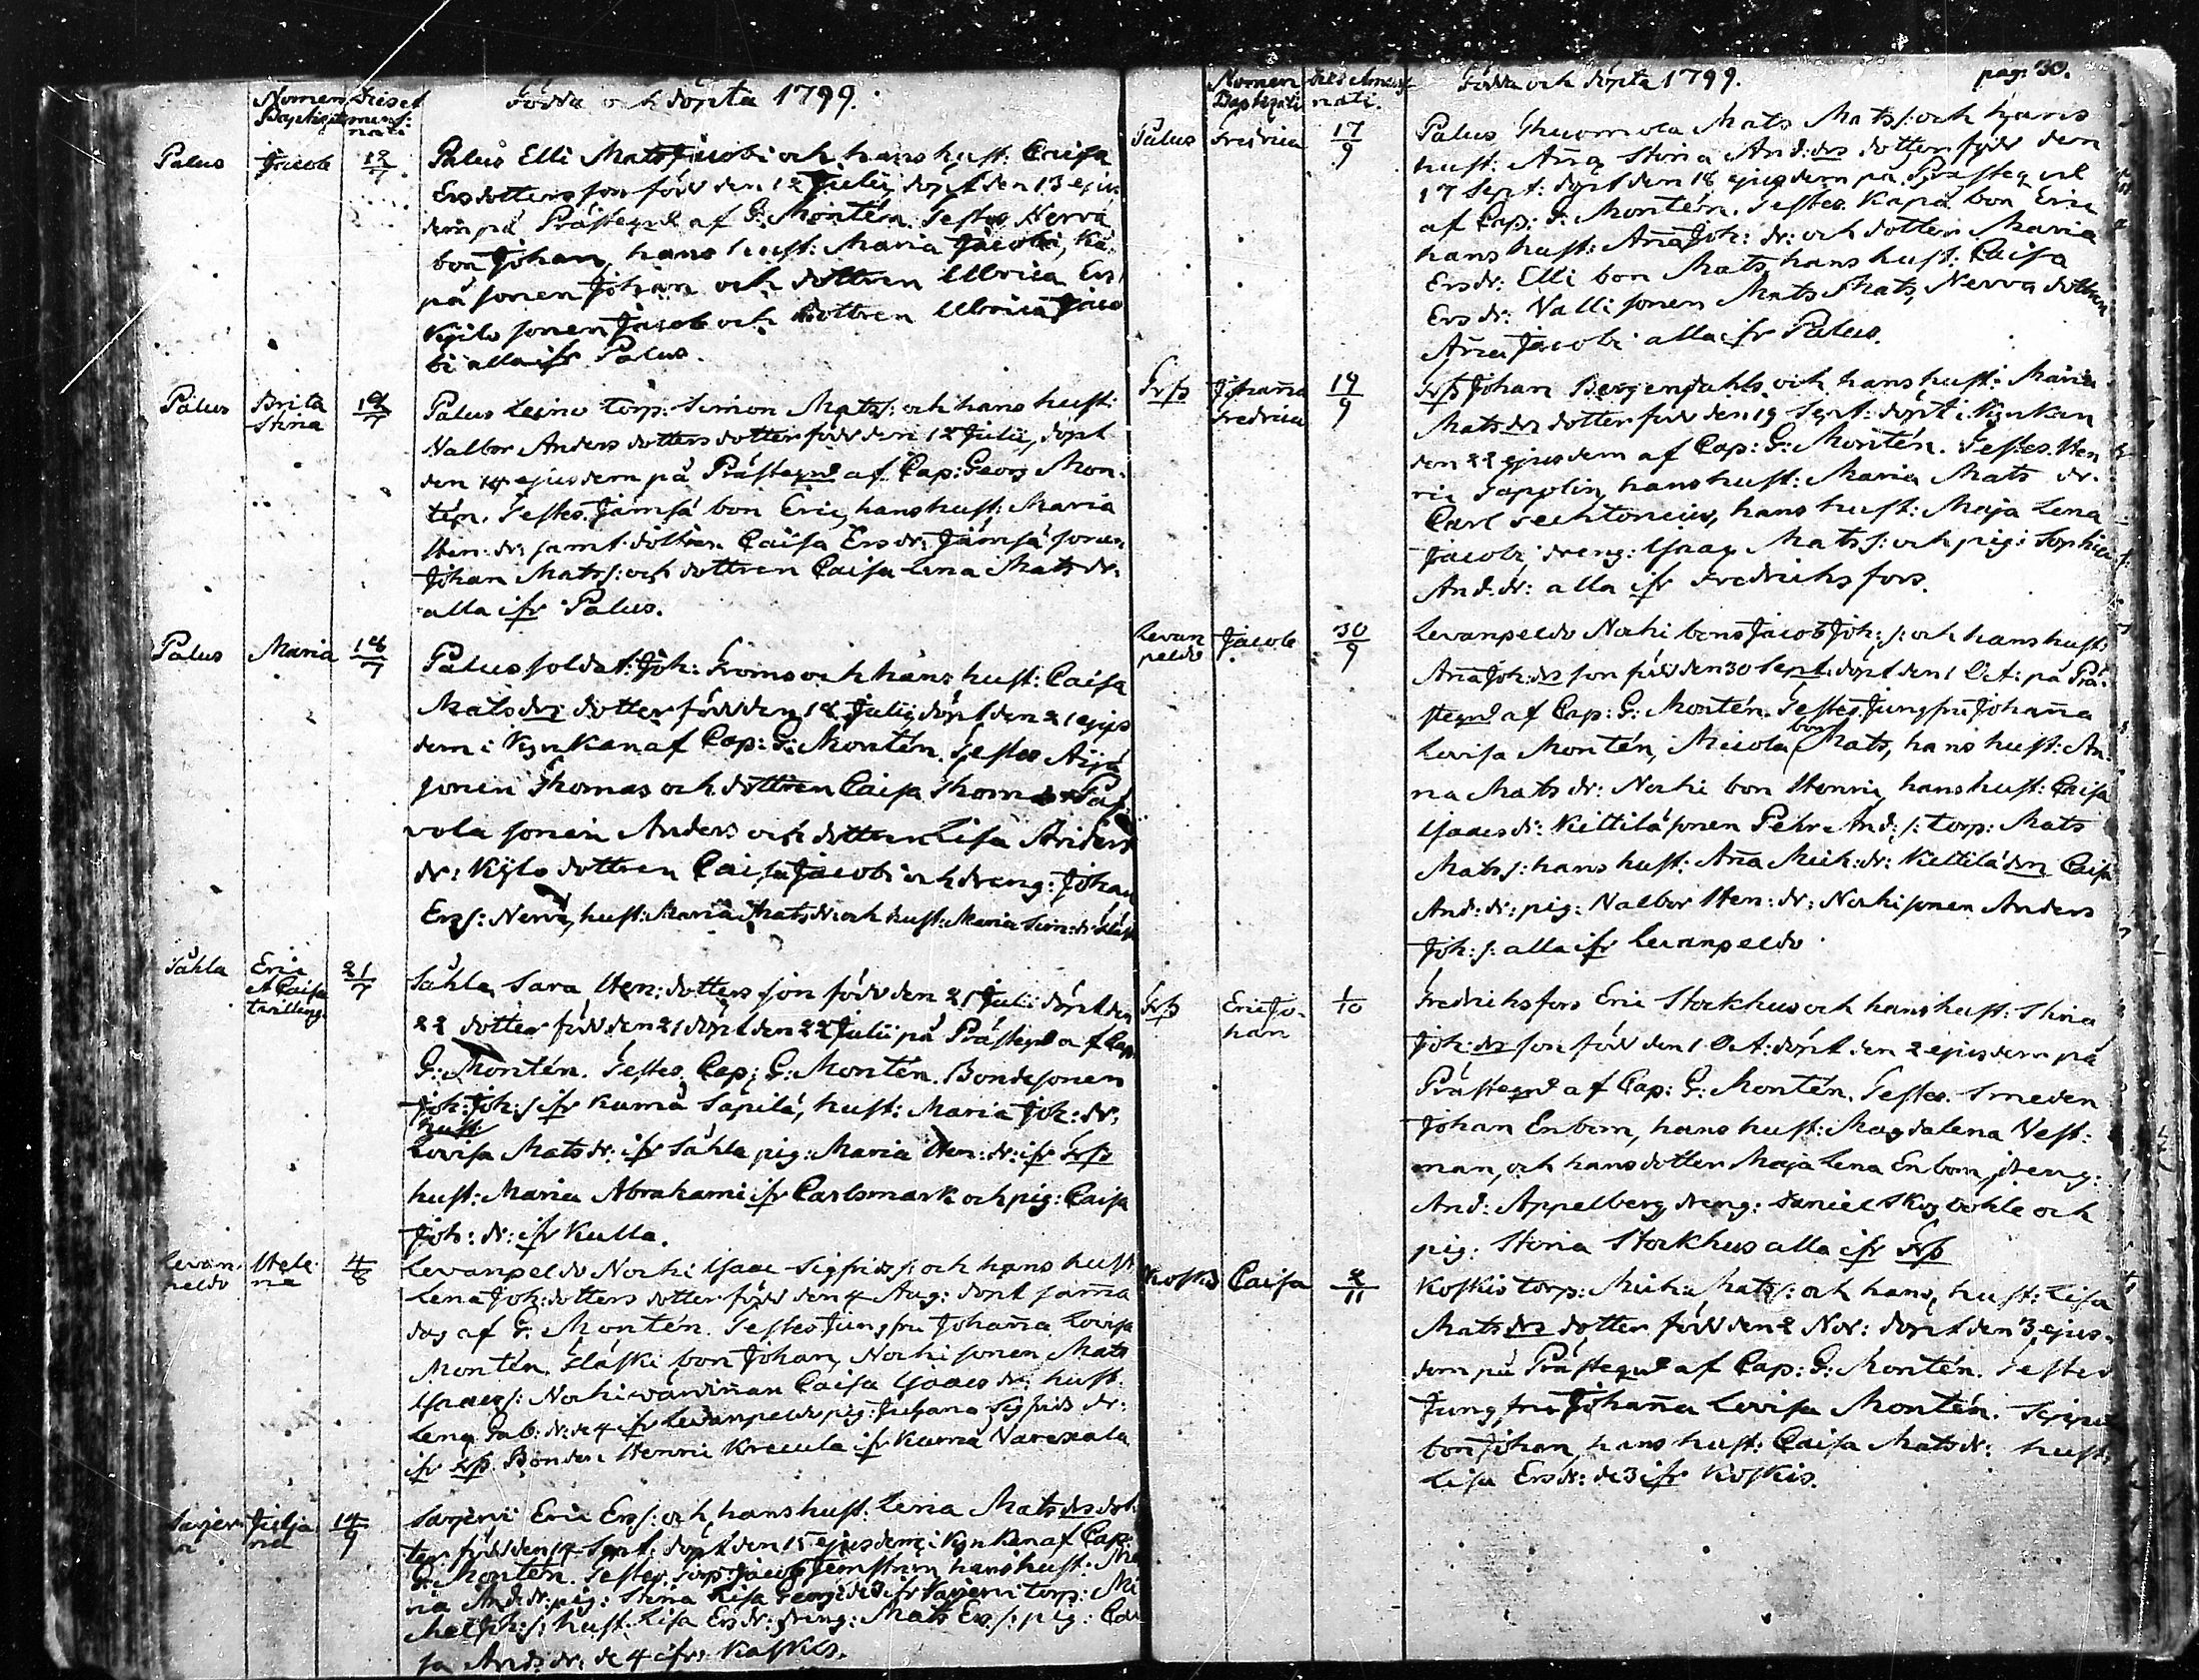 Nomen Dies et
Baptizati mens:
nati
Födda och döpta 1799.
Palus Jacob 12/7
Palus Elli Mats Jacobi och hans hust: Caisa
Ersdotters son född den 12 Julii, döpt den 13 ejus
dem på Prästegd af G: Montén. Testes Herva
bon Johan, hans hust: Maria Jacobi, Ka
på sonen Johan och dottren Ulrica Ers
Kÿlo sonen Jacob och dottren Ulrica Jaco
bi alla ifr Palus.
Palus Brita Stina 12/7
Palus Leino torp: Simon Mats s: och hans hust:
Valbor Anders dotters dotter född den 12 Julii, döpt
den 14 ejusdem på Prästegd af Cap: Georg Mon-
tén. Testes. Jämsä bon Eric, hans hust: Maria
Hen: dr: samt dottren Caisa Ers dr: Jämsä sonen
Johan Mats s: och dottren Caisa Lena Mats dr:
alla ifr Palus.
Palus Maria 18/7
Palus soldat: Joh: Froms och hans hust: Caisa
Mats drs dotter född den 18 Julii, döpt den 21 ejus
dem i Kyrkan af Cap: G: Montén. Testes Äijä
sonen Thomas och dottren Caisa Thom: dr Pa
vola sonen Anders och dottren Lisa Anders
dr: Kÿlo dottren Caisa Jacobi och dreng: Johan
Ers s: Nerva, hust: Maria Mats dr: och hust: Maria Sim: dr
Såhla Eric et Caisa tvilling: 21/7
Såhla, Sara Hen: dotters son född den 21 Julii döpt den
22 dotter född den 21 döpt den 22 Julii på Prästegd af Cap:
G: Montén. Testes. Cap: G: Montén. Bondesonen
Joh: Joh: s ifr Kumå Säpilä, hust: Maria Joh: dr:
hust:
Lovisa Mats dr: ifr Såhla pig: Maria Hen: dr: ifr Frfs
hust: Maria Abrahami ifr Carlsmark och pig: Caisa
Joh: dr: ifr Kulla.
Levan peldo Hele na 4/8
Levanpeldo Norki Isaac Sigfrids s: och hans hust
Lena Joh: dotters dotter född den 4 Aug: döpt samma
dag af G: Montén. Testes Jungfru Johanna Lovisa
Montén, Släski bon Johan, Norki sonen Mats
Isaacs s: Norki värdinnan Caisa Isaacs dr: hust.
Lena Gab: dr: de 4 ifr Levanpeldo pig: Susana Sigfrids dr:
ifr Frfs. Bonden Henric Krecula ifr Kumå
Sarjer vi na 14/9
Sarjervi Eric Ers s: och hans hust: Lena Mats drs dot
ter född den 14 Sept: döpt den 15 ejusdem i Kyrkan af Cap:
G: Montén. Testes. Torp: Jacob hans hust: Ma
ria And: dr: pig: Stina Lisa Georgi de 3 ifr Sarjervi torp: Mi
chel Joh: s: hust: Lisa Ers dr: dreng: Mats Ers s: pig: Cai
sa And: dr: de 4 ifr: Koskis.
Nomen Dies et mens:
Baptizati nati.
Födda och döpta 1799.
pag: 30.
Palus Fredrica 17/9
Palus Thuomola Mats Mats s: och hans
hust: Anna Stina And: drs dotter född den
17 Sept: döpt den 18 ejusdem på Prästegd
af Cap: G: Montén. Testes. Kapa bon Eric
hans hust: Anna Joh: dr: och dottren Maria
Ers dr: Elli bon Mats, hans hust: Caisa
Ers dr: Valli sonen Mats Mats, Nerva dottren
Anna Jacobi alla ifr Palus.
Frfs Johanna Fredrica 19/9
Frfs Johan Bergendahls och hans hust: Maria
Mats drs dotter född den 19 Sept: döpt i Kyrkan
den 22 ejusdem af Cap: G: Montén. Testes. Hen
ric Topplin, hans hust: Maria Mats dr.
Carl Techtonius, hans hust: Maja Lena
Jacobi dreng: Isaac Mats s: och pig: Sophia
And: dr: alla ifr Fredrichsfors.
Levan peldo Jacob 30/9
Levanpeldo Norki bons Jacob Joh: s: och hans hust:
Anna Joh: drs son född den 30 Sept: döpt den 1 Oct: på Prä-
stegd af Cap: G: Montén. Testes. Jungfru Johanna
Lovisa Montén, Micola bon Mats, hans hust: An-
na Mats dr: Norki bon Henric, hans hust: Caisa
Isaacs dr: Kettilä sonen Pehr And: s: torp: Mats
Mats s: hans hust: Anna Mich: dr: Kettilä drn Caisa
And: dr: pig: Valbor Hen: dr: Norki sonen Anders
Joh: s: alla ifr Levanpeldo.
Frfs Eric Jo- han 1/10
Fredrichsfors Eric Storkhus och hans hust: Stina
Joh: drs son född den 1 Oct: döpt den 2 ejusdem på
Prästegd af Cap: G: Montén. Testes. Smeden
Johan Enbom, hans hust: Magdalena West-
man, och hans dotter Maja Lena Enbom, dreng:
And: Appelberg, dreng: Daniel Skog och
pig: Stina Storkhus alla ifr Frfs
Koskis Caisa 2/11
Koskis torp: Mich: Mats s: och hans hust: Lisa
Mats drs dotter född den 2 Nov: döpt den 3 ejus-
dem på Prästegd af Cap: G: Montén. Testes
Jungfru Johanna Lovisa Montén.
bon Johan, hans hust: Caisa Mats dr: hust:
Lisa Ers dr: de 3 ifr Koskis.